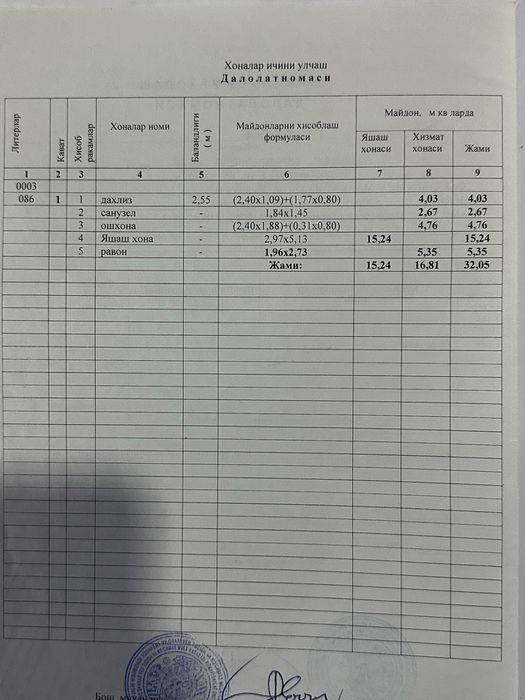 Хоналар ичини улчаш
Далолатномаси
Литерлар Кават Хисоб ракамлар Хоналар номи Баландлиги ( м ) Майдонларни хисоблаш формуласи Майдон, м кв ларда
Яшаш хонаси Хизмат хонаси Жами
1 2 3 4 5 6 7 8 9
0003
086 1 1 дахлиз 2,55 (2,40х1,09)+(1,77х0,80) 4,03 4,03
2 санузел - 1,84х1,45 2,67 2,67
3 ошхона - (2,40х1,88)+(0,31х0,80) 4,76 4,76
4 Яшаш хона - 2,97х5,13 15,24 15,24
5 равон - 1,96х2,73 5,35 5,35
Жами: 15,24 16,81 32,05
Бош